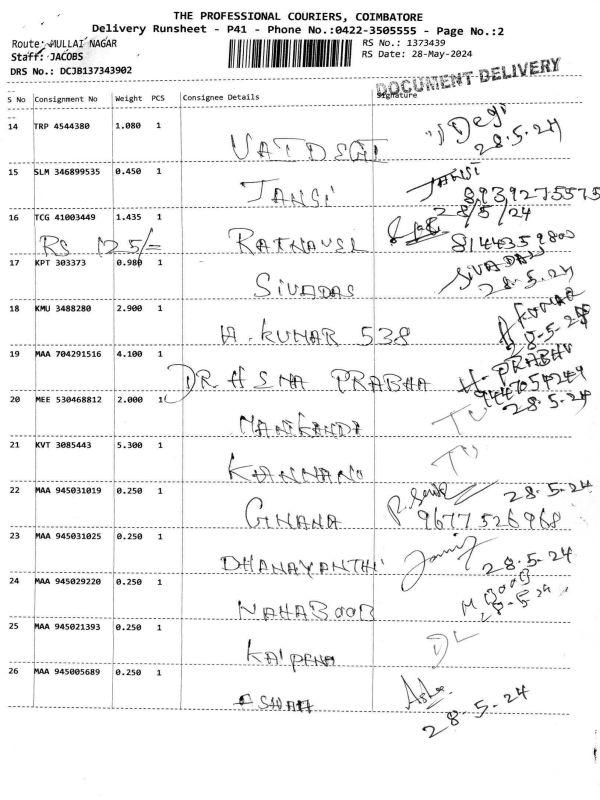 THE PROFESSIONAL COURIERS, COIMBATORE
Delivery Runsheet - P41 - Phone No.:0422-3505555 - Page No.:2
Route: MULLAI NAGAR
RS No.: 1373439
Staff: JACOBS
RS Date: 28-May-2024
DRS No.: DCJB137343902
DOCUMENT DELIVERY
S No Consignment No Weight PCS Consignee Details Signature
14 TRP 4544380 1.080 1
28.5.24
15 SLM 346899535 0.450 1 JANSi JANSi
8939275575
16 TCG 41003449 1.435 1 28/5/24
RS 125/= RATHAVEL 8144359800
17 KPT 303373 0.980 1 SIVADAS SIVADAS
28.5.24
18 KMU 3488280 2.900 1 H.KUMAR 538 KUMAR
28-5-24
19 MAA 704291516 4.100 1 DR.HEMA PRABHA H-PRABHU
9447054249
20 MEE 530468812 2.000 1 28.5.24
MANIKANDA
21 KVT 3085443 5.300 1
KANNANO
22 MAA 945031019 0.250 1 GNANA 28.5.24
9677526968
23 MAA 945031025 0.250 1 DHANAYANTHi 28.5.24
24 MAA 945029220 0.250 1 MAHABOOB M BOOB
28-5-24
25 MAA 945021393 0.250 1 KAlpana DL
26 MAA 945005689 0.250 1 ESWAR
28-5-24